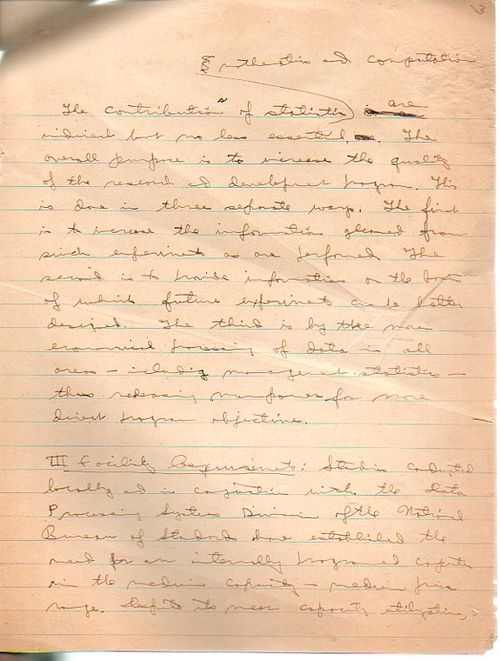 3
mathematics and computation
The contributions of statistics are
indirect but no less essential. The
overall purpose is to increase the quality
of the research and development program. This
is done in three separate ways. The first
is to increase the information gleaned from
such experiments as are performed. The
second is to provide information on the basis
of which future experiments can be better
designed. The third is by the more
economical processing of data in all
areas - including management statistics -
thus releasing manpower for more
direct program objectives.
III Facility Requirements: Studies conducted
locally and in conjunction with the Data
Processing Systems Division of the National
Bureau of Standards have established the
need for an internally programmed computer
in the medium capacity - medium price
range. Despite its mean capacity utilization,